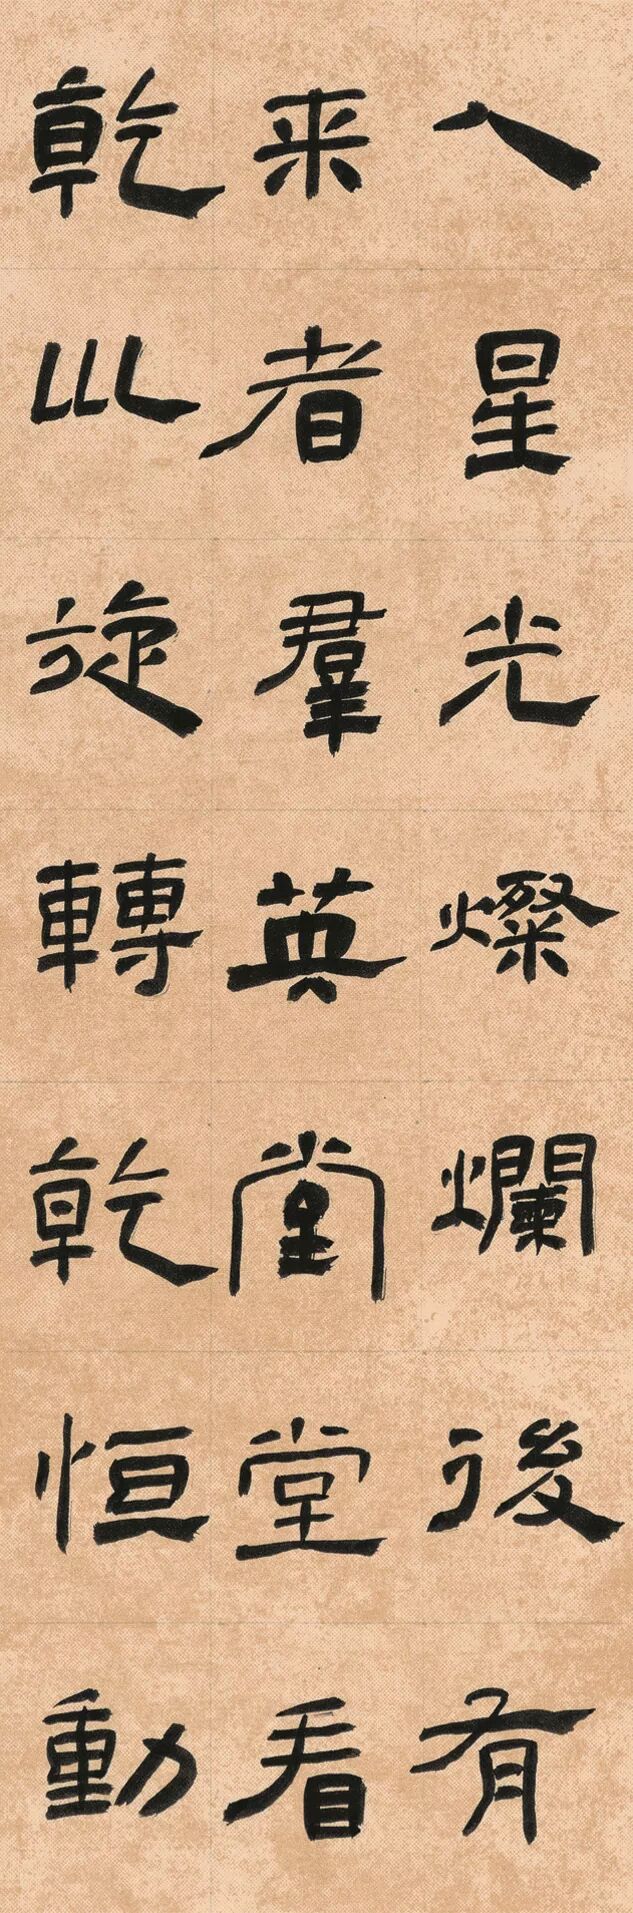 人星光燦爛後有
来者羣英堂堂看
乾巛旋轉乾恒動